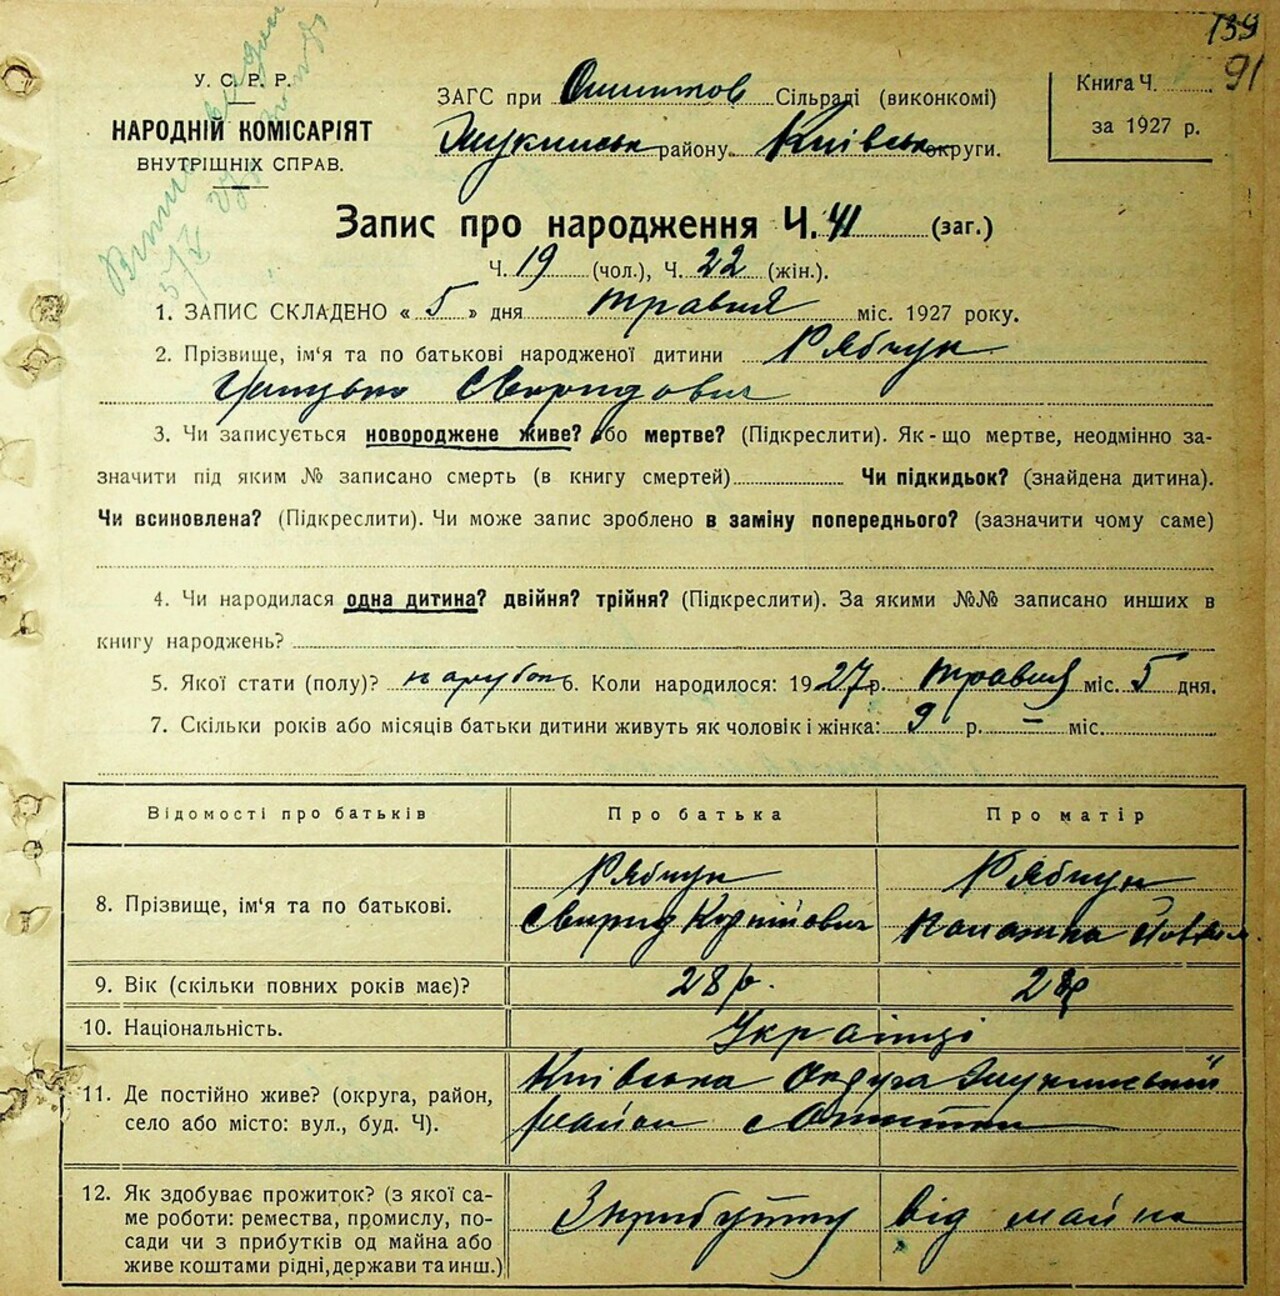 139
91
У. С. Р. Р.
НАРОДНІЙ КОМІСАРІЯТ
ВНУТРІШНІХ СПРАВ.
ЗАГС при Сільраді (виконкомі)
району Київськ округи.
Книга Ч.
за 1927 р.
Запис про народження Ч. 41 (заг.)
Ч. 19 (чол.), Ч. 22 (жін.).
1. ЗАПИС СКЛАДЕНО « 5 » дня травня міс. 1927 року.
2. Прізвище, ім‘я та по батькові народженої дитини Рябчун
Свиридович
3. Чи записується новороджене живе? або мертве? (Підкреслити). Як-що мертве, неодмінно за-
значити під яким № записано смерть (в книгу смертей) Чи підкидьок? (знайдена дитина).
Чи всиновлена? (Підкреслити). Чи може запис зроблено в заміну попереднього? (зазначити чому саме)
4. Чи народилася одна дитина? двійня? трійня? (Підкреслити). За якими №№ записано инших в
книгу народжень?
5. Якої стати (полу)? парубок 6. Коли народилося: 1927 р. травня міс. 5 дня.
7. Скільки років або місяців батьки дитини живуть як чоловік і жінка: 9 р. — міс.
Відомості про батьків Про батька Про матір
8. Прізвище, ім‘я та по батькові. Рябчун Свирид Корнійович Рябчун
9. Вік (скільки повних років має)? 28 р. 28 р
10. Національність. Українці
11. Де постійно живе? (округа, район, село або місто: вул., буд. Ч). Київська Округа район с
12. Як здобуває прожиток? (з якої са-
ме роботи: ремества, промислу, по-
сади чи з прибутків од майна або
живе коштами рідні, держави та инш.)
З прибутку від майна